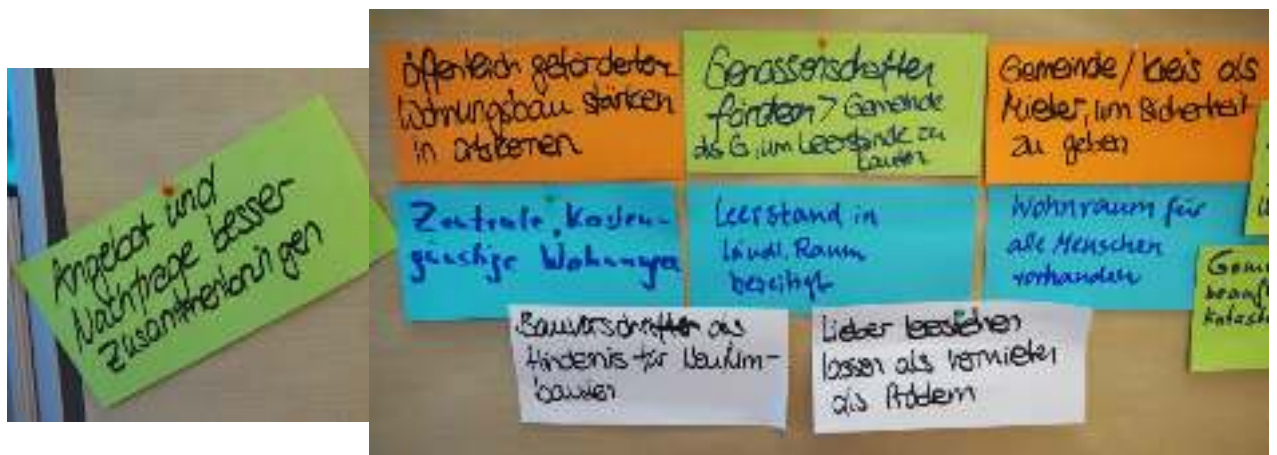 Angebot und
Nachfrage besser
zusammenbringen
öffentlich geförderten
Wohnungsbau stärken
in Ortskernen
Genossenschaften
fördern > Gemeinde
als G, um Leerstände zu
Gemeinde / Kreis als
Mieter, um Sicherheit
zu geben
Zentrale, Kosten-
günstige Wohnungen
Leerstand in
ländl. Raum
beseitigt
Wohnraum für
alle Menschen
vorhanden
Bauvorschriften als
Hindernis für Neu/um-
bauten
Lieber leerstehen
lassen als vermieten
als Problem